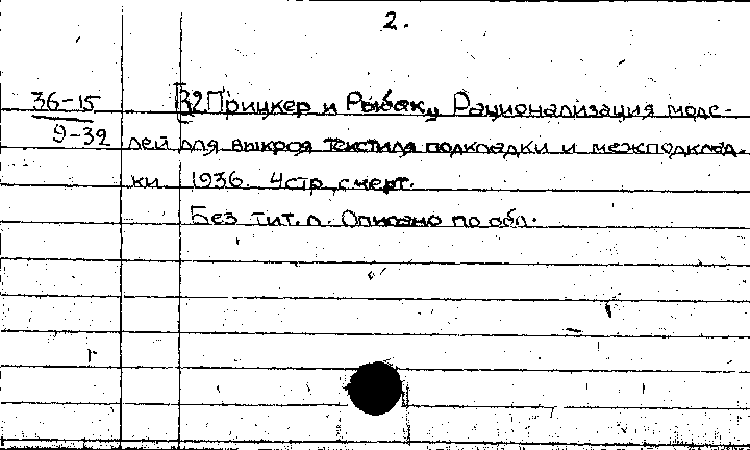 2.
36-15 [32 Прицкер и Рыбак, Рационализация моде-
9-32 лей для выкроя текстиля подкладки и межподклад-
ки 1936. 4 стр. с черт.
Без тит. л. Описано по обл.